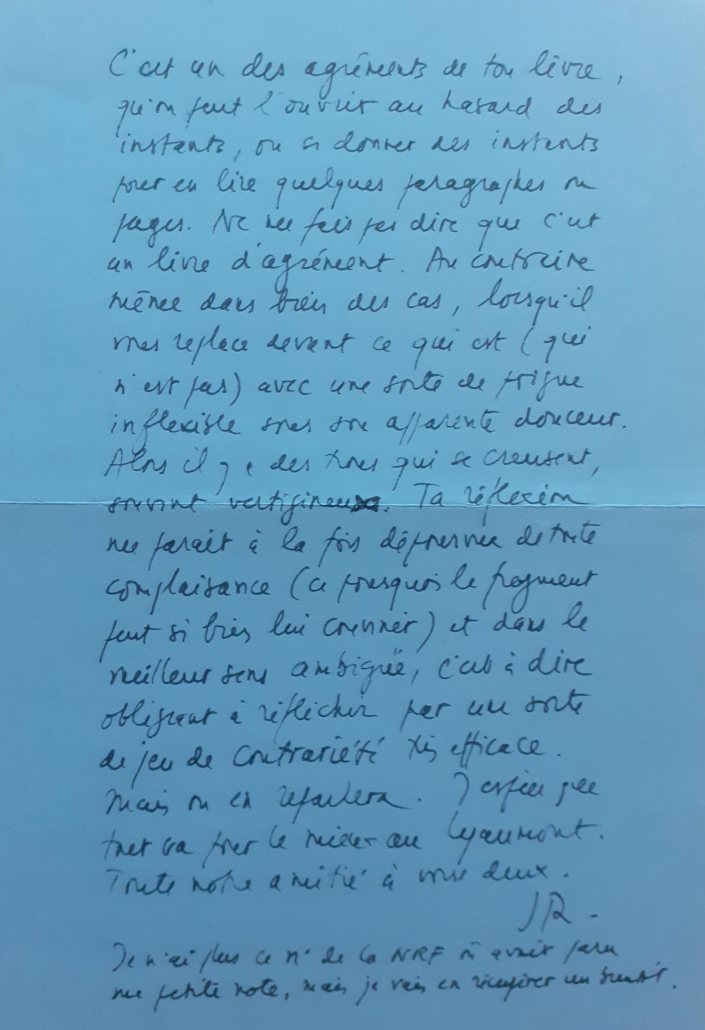 C'est un des agréments de ton livre,
qu'on peut l'ouvrir au hasard des
instants, ou se donner des instants
pour en lire quelques paragraphes ou
pages. Ne me fais pas dire que c'est
un livre d'agrément. Au contraire
même dans bien des cas, lorsqu'il
nous replace devant ce qui est (qui
n'est pas) avec une sorte de poigne
inflexible sous son apparente douceur.
Alors il y a des trous qui se creusent,
souvent vertigineux. Ta réflexion
me paraît à la fois dépourvue de toute
complaisance (ce pourquoi le fragment
peut si bien lui convenir) et dans le
meilleur sens ambiguë, c'est à dire
obligeant à réfléchir par une sorte
de jeu de contrariété très efficace.
Mais on en reparlera. J'espère que
tout va pour le mieux au
Toute notre amitié à vous deux.
JR -
Je n'ai plus ce n° de la NRF où avait paru
ma petite note, mais je vais en récupérer un bientôt.